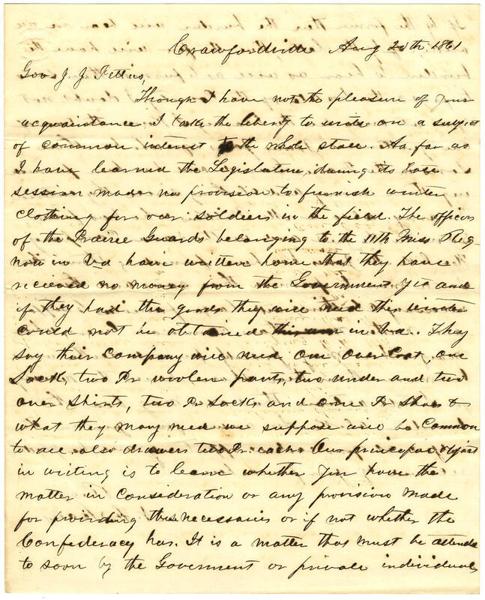 Crawfordville Aug 20th 1861
Gov. J. J. Pettus,
Though I have not the pleasure of your
acquaintance I take the liberty to write on a subject
of common interest to the whole state. As far as
I have learned the Legislature during its late
session made no provision to furnish winter
clothing for our soldiers in the field. The officers
of the Prairie Guards belonging to the 11th Miss Reg
now in Va have written home that they have
received no money from the Government yet and
if they had the goods they will need this winter
could not be obtained in Va. They
say their company will need one over Coat, one
Sack, two Pr woolen pants, two under and two
over shirts, two Pr Socks and one Pr Shoes &
what they may need we suppose will be common
to all also drawers two Pr each. Our principal object
in writing is to learn whether you have the
matter in consideration or any provision made
for providing these necessaries or if not whether the
Confederacy has. It is a matter that must be attended
to soon by the Goverment or private individuals